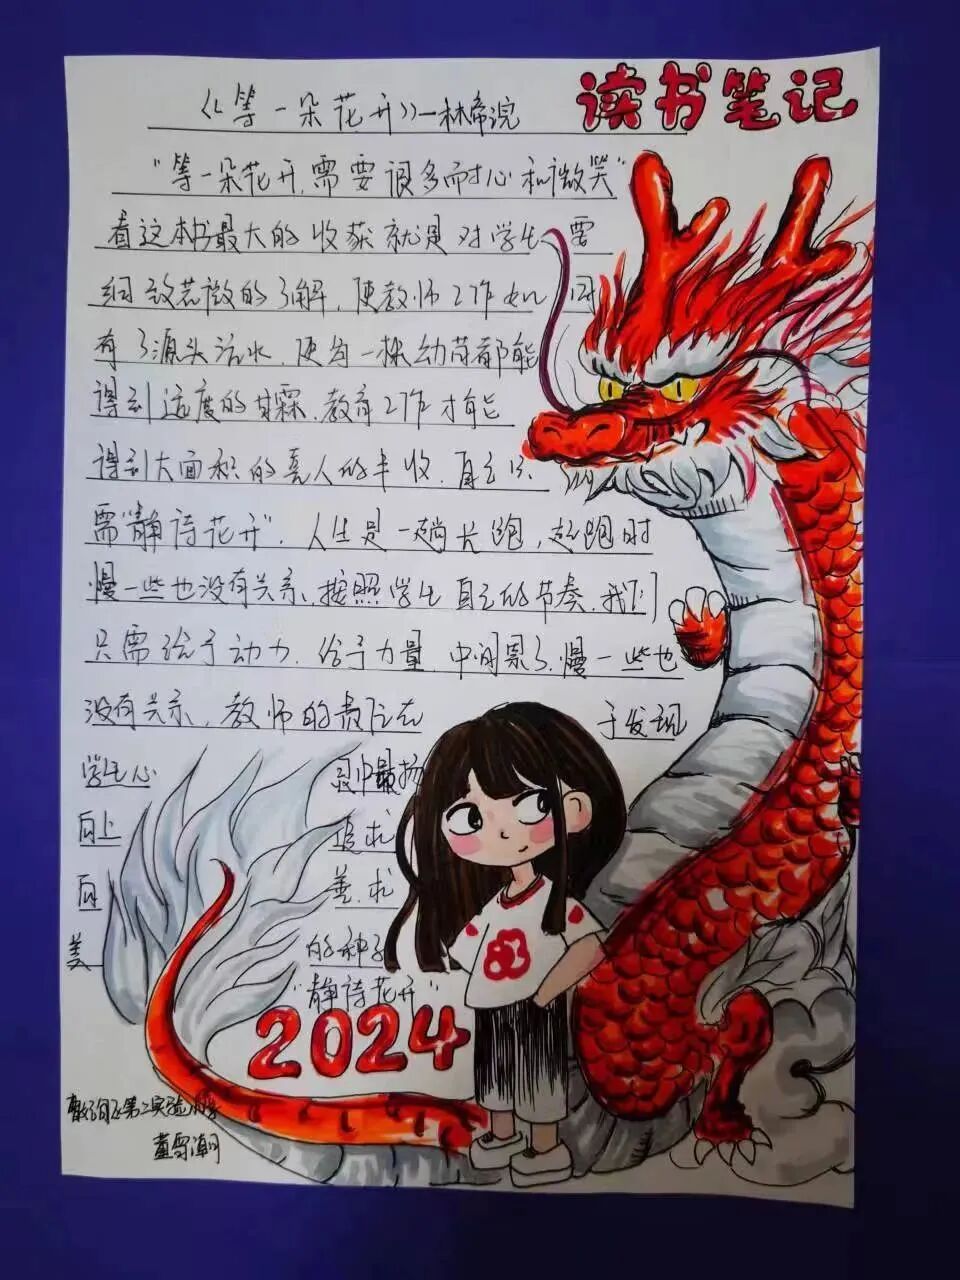 读书笔记
《等一朵花开》—林帝浣
"等一朵花开,需要很多耐心和微笑"
看这本书最大的收获就是对学生需
细致若微的了解,使教师工作如同
有了源头活水,使每一株幼苗都能
得到适度的甘霖,教育工作才能
得到大面积的喜人的丰收,
需"静诗花开",人生是一趟长跑,起跑时
慢一些也没有关系,按照学生自主的节奏,我们
只需给予动力,给予力量,中间累了,慢一些也
没有关系,教师的责任在于发现
学生心灵中最
向上 追求
向善,求
美的种子
"静诗花开"
2024
第二实验小学